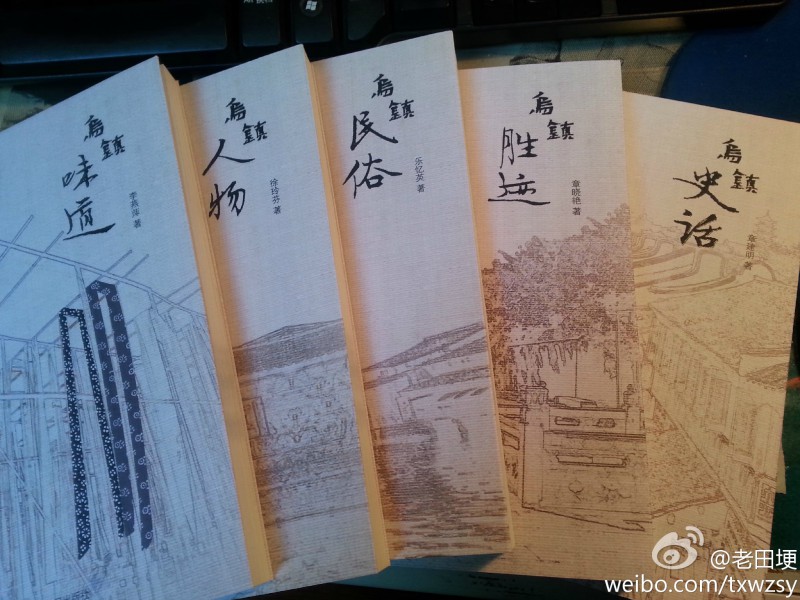 烏鎮
味道
李燕萍 著
烏鎮
人物
徐玲芬 著
烏鎮
民俗
乐忆英 著
烏鎮
胜迹
章晓艳 著
烏鎮
史话
章建明 著
@老田埂
weibo.com/txwzsy